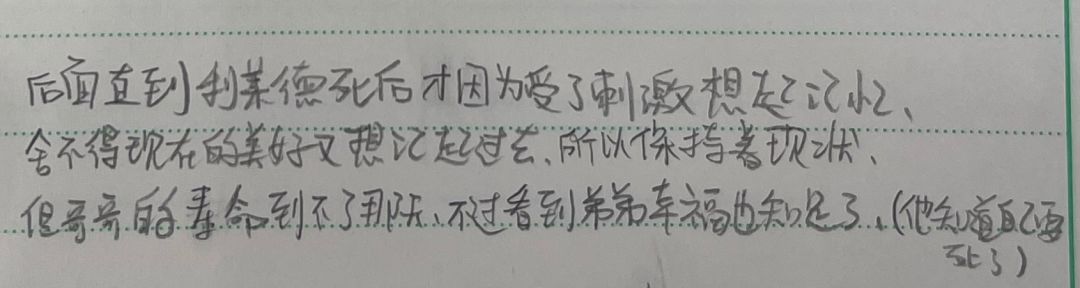 后面直到利莱德死后才因为受了刺激想起记忆、
舍不得现在的美好又想记起过去、所以保持着现状、
但哥哥的寿命到不了那阵、不过看到弟弟幸福也知足了、(他知道自己要
死了)